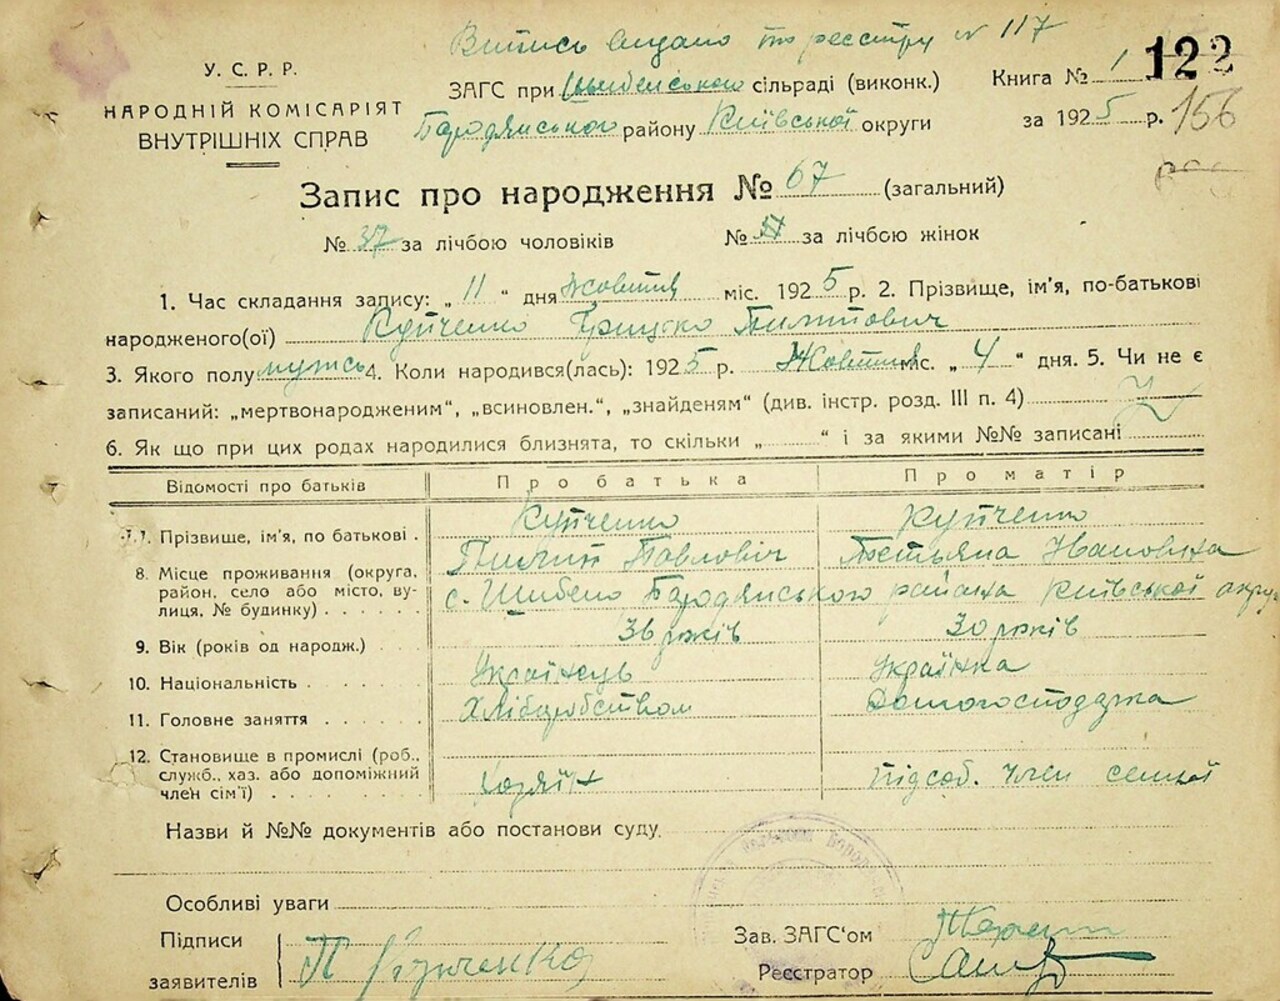 Випись видано по реєстру № 117
У. С. Р. Р.
НАРОДНІЙ КОМІСАРІЯТ
ВНУТРІШНІХ СПРАВ
ЗАГС при Шибенському сільраді (виконк.)
Бородянського району Київської округи
Книга № 1 122
за 1925 р. 156
Запис про народження № 67 (загальний)
№ 37 за лічбою чоловіків № за лічбою жінок
1. Час складання запису: „ 11 “ дня Жовтня міс. 1925 р. 2. Прізвище, ім'я, по-батькові
народженого(ої) Купченко Грицько Пилипович
3. Якого полу мужськ 4. Коли народився(лась): 1925 р. Жовтня міс. „ 4 “ дня. 5. Чи не є
записаний: „мертвонародженим“, „всиновлен.“, „знайденям“ (див. інстр. розд. III п. 4)
6. Як що при цих родах народилися близнята, то скільки „ “ і за якими №№ записані
Відомості про батьків Про батька Про матір
7. Прізвище, ім'я, по батькові . Купченко Пилип Павловіч Купченко Тетьяна Івановна
8. Місце проживання (округа, район, село або місто, вулиця, № будинку) . . . . . с. Шибено Бородянського района Київської округи
9. Вік (років од народж.) . . . 36 років 30 років
10. Національність . . . . . . Українець Українка
11. Головне заняття . . . . . . Хліборобством Домогосподарка
12. Становище в промислі (роб., служб., хаз. або допоміжний член сім'ї) . . . . . . . . Хозяїн підсоб. член семьї
Назви й №№ документів або постанови суду.
Особливі уваги
Підписи
заявителів П Купченко
Зав. ЗАГС'ом
Реєстратор